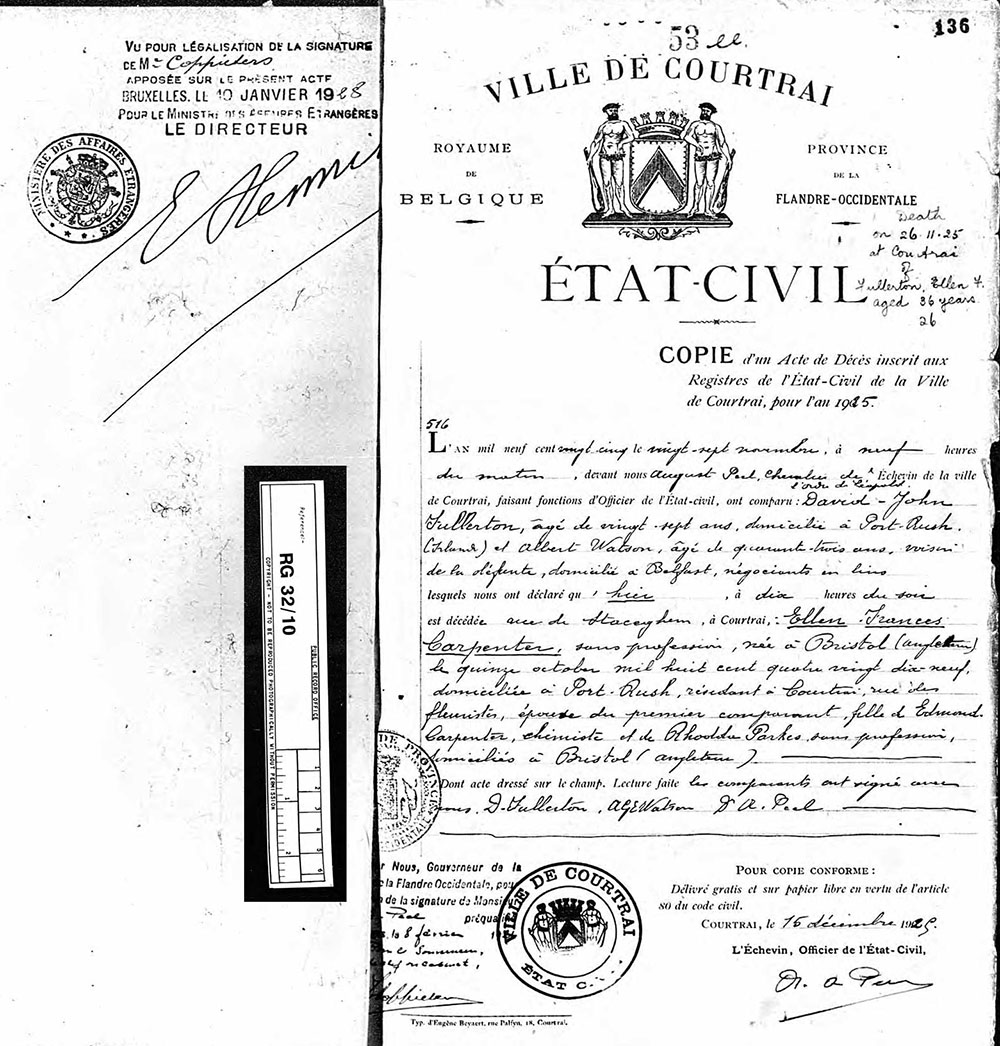 VU POUR LÉGALISATION DE LA SIGNATURE
DE Mr Coppieters
APPOSÉE SUR LE PRÉSENT ACTE
BRUXELLES, LE 10 JANVIER 1928
POUR LE MINISTRE DES AFFAIRES ETRANGÈRES
LE DIRECTEUR
MINISTÈRE DES AFFAIRES ETRANGÈRES
E Henni
Reference:-
RG 32/10
PUBLIC RECORD OFFICE
COPYRIGHT - NOT TO BE REPRODUCED PHOTOGRAPHICALLY WITHOUT PERMISSION
1 2 3 4 5 6
1 2
136
53 ll.
VILLE DE COURTRAI
ROYAUME
DE
BELGIQUE
PROVINCE
DE LA
FLANDRE-OCCIDENTALE
Death
on 26.11.25
at Courtrai
of
Fullerton, Ellen F.
aged 36 years.
26
ÉTAT-CIVIL
COPIE d'un Acte de Décès inscrit aux
Registres de l'État-Civil de la Ville
de Courtrai, pour l'an 1925.
516
L'AN mil neuf cent vingt-cinq le vingt-sept novembre, à neuf heures
du matin, devant nous August Peel, Chevalier de l'ordre de Léopold Échevin de la ville
de Courtrai, faisant fonctions d'Officier de l'État-civil, ont comparu : David-John
Fullerton, âgé de vingt-sept ans, domicilié à Port-Rush.
(Irlande) et Albert Watson, âgé de quarant-trois ans, voisin
de la défunte, domicilié à Belfast, négociants en lins
lesquels nous ont déclaré qu'hier, à dix heures du soir
est décédée rue de Staceghem, à Courtrai, : Ellen Frances
Carpenter, sans profession, née à Bristol (angleterre)
le quinze octobre mil huit cent quatre vingt dix-neuf,
domiciliée à Port-Rush, résidant à Courtrai, rue des
fleuristes, épouse du premier comparant, fille d'Edmond
Carpenter, chimiste et de Rhodda Parkes, sans profession,
domiciliés à Bristol (angleterre)
Dont acte dressé sur le champ. Lecture faite les comparants ont signé avec
nous. D. Fullerton, AGEWatson Dr A. Peel
DE PROVINC
DENTALE
r Nous, Gouverneur de la
e la Flandre Occidentale, pou
n de la signature de Monsi
Peel préqua
le 8 février
Coppieters
VILLE DE COURTRAI
ÉTAT C
POUR COPIE CONFORME :
Délivré gratis et sur papier libre en vertu de l'article
80 du code civil.
COURTRAI, le 15 décembre 1925.
L'Échevin, Officier de l'État-Civil,
Dr. A Peel
Typ. d'Eugène Beyaert, rue Palfyn, 18, Courtrai.